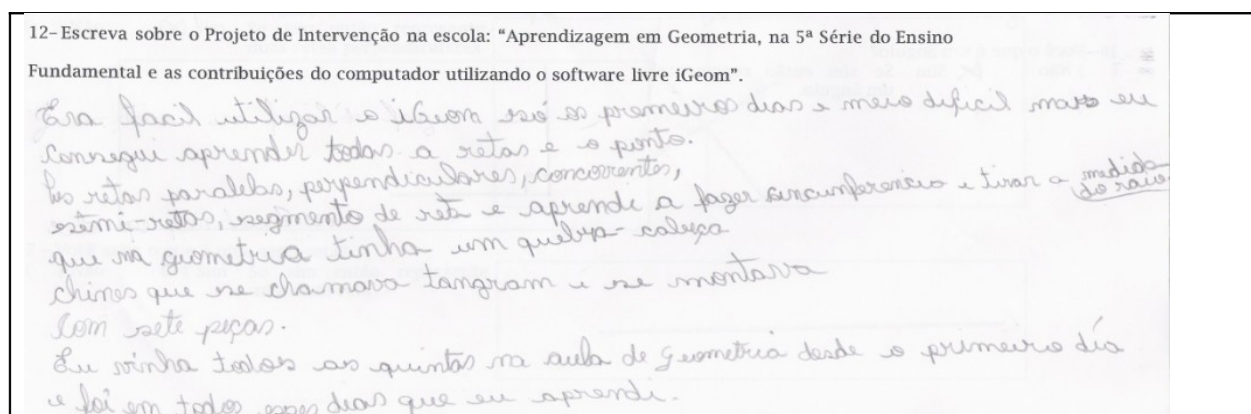 12- Escreva sobre o Projeto de Intervenção na escola: "Aprendizagem em Geometria, na 5ª Série do Ensino
Fundamental e as contribuições do computador utilizando o software livre iGeom".
Era facil utilizar o iGeom só os promeiros dias e meio dificil mas eu
Consegui aprender todas a retas e o ponto.
As retas paralelas, perpendiculares, concorrentes,
sémi-retas, segmento de reta e aprendi a fazer sincunferencia e tirar a medida
do raio
que na geometria tinha um quebra-cabeça
chines que se chamava tangram e se montava
Com sete peças.
Eu vinha todas as quintas na aula de Geometria desde o primeiro día
e foi em todos esses dias que eu aprendi.